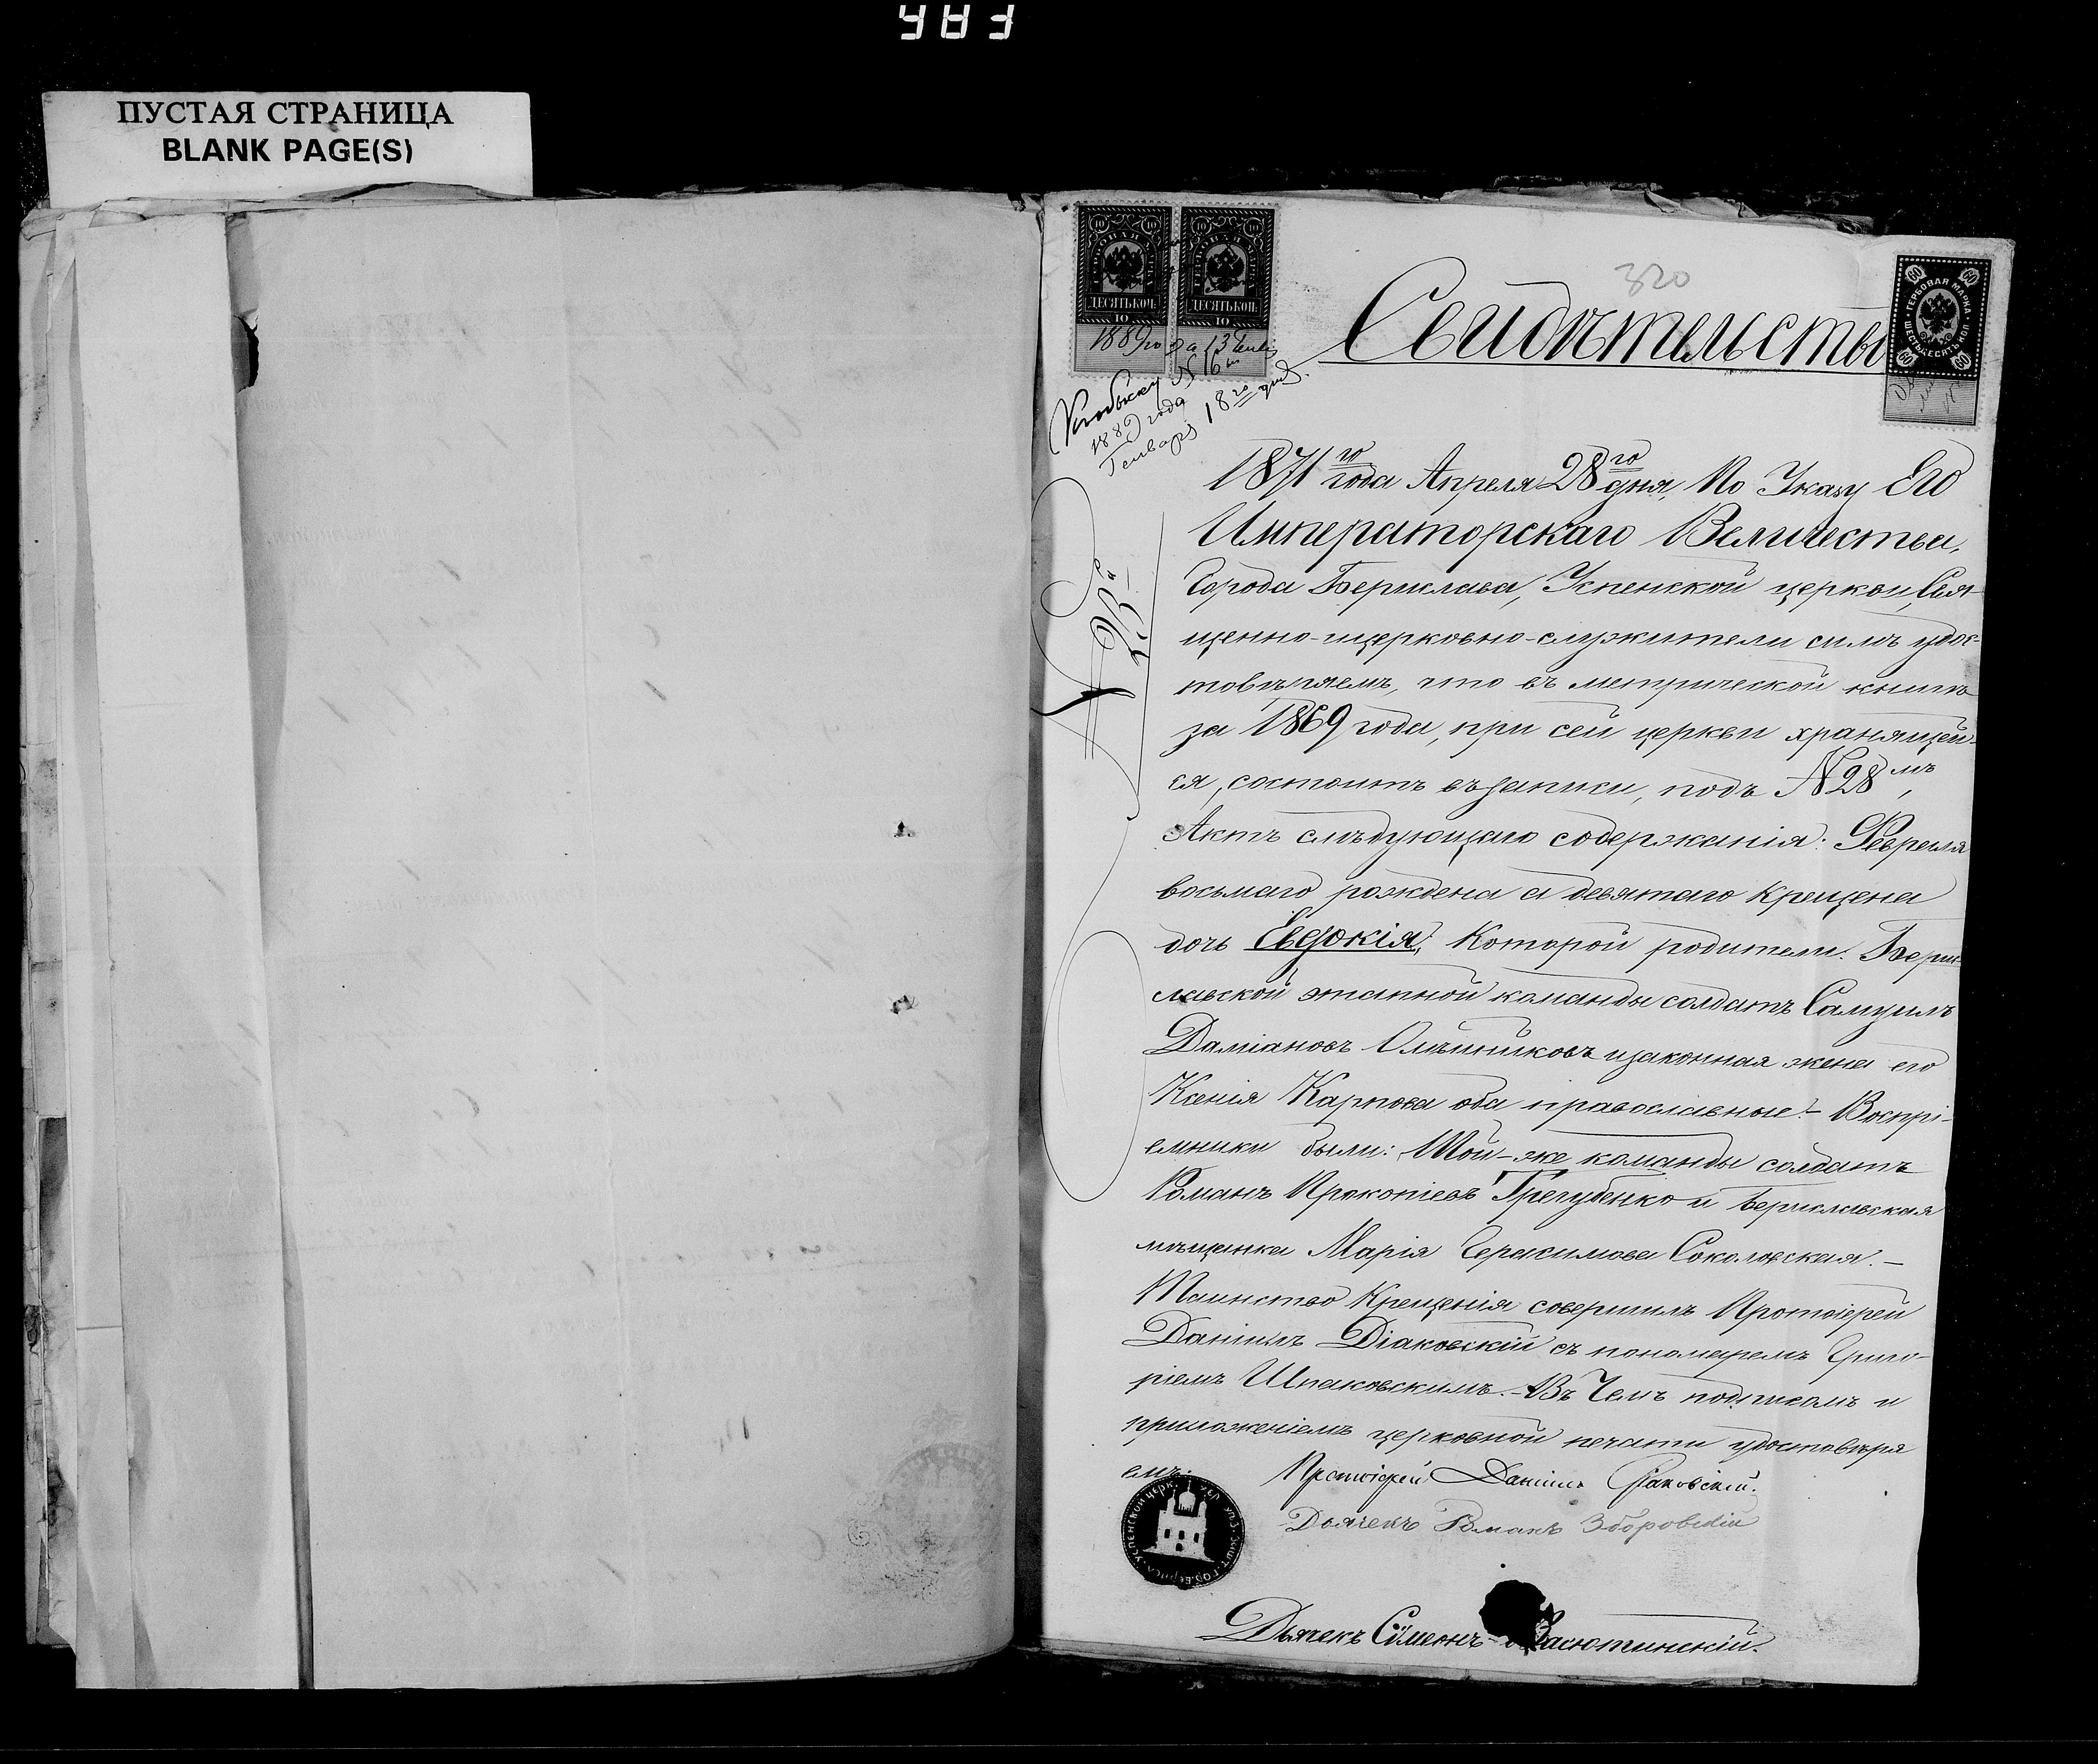 ПУСТАЯ СТРАНИЦА
BLANK PAGE(S)
320
Свидѣтельство
ДЕСЯТЬ КОП.
10
ДЕСЯТЬ КОП.
10
ГЕРБОВАЯ МАРКА
ШЕСТЬДЕСЯТЪ КОП.
60
1889го года 13 Генв
N 16
1889 года
Генваря 18го дня
N 23й
1871го года Апреля 28го дня, По Указу Его
Императорскаго Величества,
Города Берислава, Успенской церкви, Свя-
щенно-церковно-служители симъ удос-
товѣряемъ, что въ метрической книгѣ
за 1869 года, при сей церкви хранящей-
ся, состоитъ въ записи, подъ N 28мъ,
Актъ слѣдующаго содержанія: Февраля
восьмаго рождена а девятаго крещена
дочь Евдокія, которой родители: Бери-
славской этапной команды солдатъ Самуилъ
Даміановъ Олѣйниковъ и законная жена его
Ксенія Карпова оба православные. – Воспрі-
емники были: Той-же команды солдатъ
Романъ Прокопіевъ Трегубенко и Бериславская
мѣщанка Марія Герасимова Соколовская. –
Таинство Крещенія совершилъ Протоіерей
Даніилъ Діаковскій съ пономаремъ Григо-
ріемъ Шпаковскимъ. – Въ чемъ подписомъ и
приложеніемъ церковной печати удостовѣря
емъ.
Протоіерей Даніилъ Діаковскій.
Дьячекъ Романъ Зборовскій
Дьячекъ Сѵмеонъ Васютинскій.